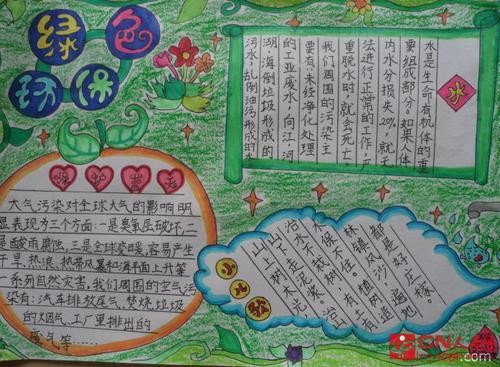 绿色
环保
水
水是生命有机体的重
要组成部分,如果人体
内水分损失20%,就无
法进行正常的工作,严
重脱水时,就会死亡,
我们周围的污染主
要有:未经净化处理
的工业废水,向江,河
湖,海倒垃圾形成的
污水,乱倒油污形成的水
保护蓝天
大气污染对全球大气的影响明
显表现为三个方面:一是臭氧层破坏,二
是酸雨腐蚀,三是全球变暖,容易产生
干旱,热浪,热带风暴和海平面上升等
系列自然灾害,我们周围的空气污
染有:汽车排放尾气,焚烧垃圾
的烟气,工厂里排出的
废气等……
小儿歌
都是好庄稼。